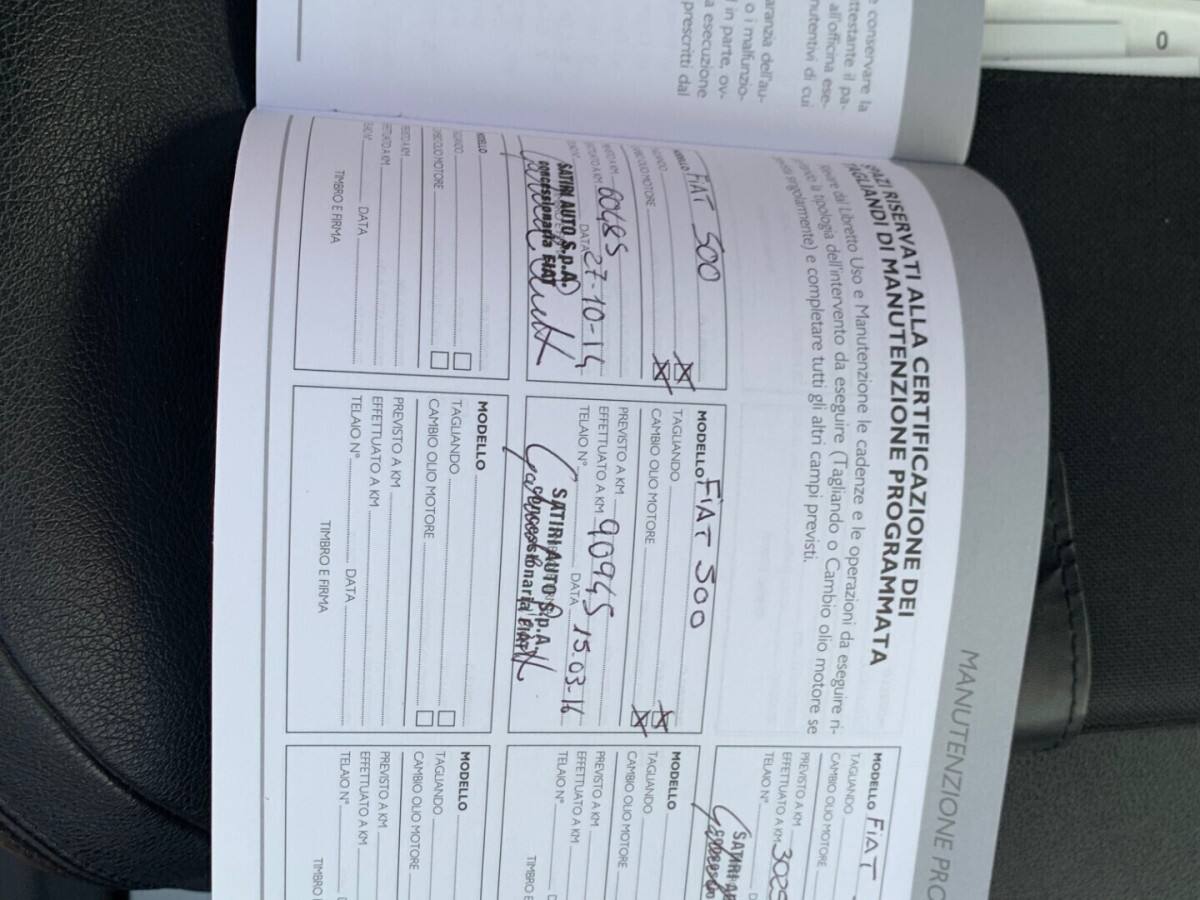 e conservare la
ttestante il pa-
all'officina ese-
nutentivi di cui
aranzia dell'au-
o i malfunzio-
in parte, ov-
a esecuzione
prescritti dal
MANUTENZIONE PRO
AZI RISERVATI ALLA CERTIFICAZIONE DEI
TAGLIANDI DI MANUTENZIONE PROGRAMMATA
dal Libretto Uso e Manutenzione le cadenze e le operazioni da eseguire ri-
la tipologia dell'intervento da eseguire (Tagliando o Cambio olio motore se
singolarmente) e completare tutti gli altri campi previsti.
MODELLO FIAT
TAGLIANDO
CAMBIO OLIO MOTORE
PREVISTO A KM
EFFETTUATO A KM 3025
TELAIO N°
SATIRI A
MODELLO FIAT 500
OLIO MOTORE
60485
DATA 27-10-14
SATIRI AUTO S.p.A.
Concessionaria FIAT
MODELLO FIAT 500
TAGLIANDO
CAMBIO OLIO MOTORE
PREVISTO A KM
EFFETTUATO A KM 90945
TELAIO N° DATA 15-03-16
SATIRI AUTO S.p.A.
Concessionaria FIAT
MODELLO
TAGLIANDO
CAMBIO OLIO MOTORE
PREVISTO A KM
EFFETTUATO A KM
TELAIO N°
MODELLO
OLIO MOTORE
DATA
TIMBRO E FIRMA
MODELLO
TAGLIANDO
CAMBIO OLIO MOTORE
PREVISTO A KM
EFFETTUATO A KM
TELAIO N° DATA
TIMBRO E FIRMA
MODELLO
TAGLIANDO
CAMBIO OLIO MOTORE
PREVISTO A KM
EFFETTUATO A KM
TELAIO N°
TIMBRO E